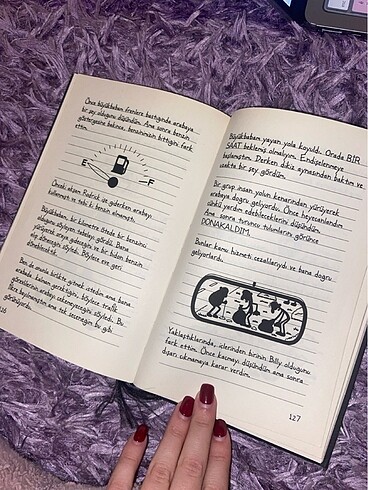 Önce büyükbabam frenlere bastığında arabaya
bir şey olduğunu düşündüm. Ama sonra benzin
göstergesine bakınca, benzinimizin bittiğini fark
ettim.
E
F
Önceki akşam Rodrick işe giderken arabayı
kullanmıştı ve tabi ki benzin almamıştı.
Büyükbabam, bir kilometre ötede bir benzinci
olduğunu söyleyen tabelayı gördü. Bana
yürüyerek oraya gideceğini ve bir bidon benzin
alıp döneceğini söyledi. Böylece eve geri
dönebilirdik.
Ben de onunla birlikte gitmek istedim ama bana
arabada kalmam gerektiğini, böylece trafik
görevlilerinin arabayı çekmeyeceğini söyledi. Bu
gibi
görünüyordu.
126
Büyükbabam yayan yola koyuldu. Orada BİR
SAAT beklemiş olmalıyım. Endişelenmeye
başlamıştım. Derken dikiz aynasından baktım ve
uzakta bir şey gördüm.
Bir grup insan yolun kenarından yürüyerek
arabaya doğru geliyordu. Önce heyecanlandım
çünkü yardım edebileceklerini düşündüm.
Ama sonra turuncu tulumlarını görünce
DONAKALDIM.
Bunlar kamu hizmeti cezalılarıydı ve bana doğru
geliyorlardı.
Yaklaştıklarında, içlerinden birinin Billy olduğunu
fark ettim. Önce kaçmayı düşündüm ama sonra
dışarı çıkmamaya karar verdim.
127